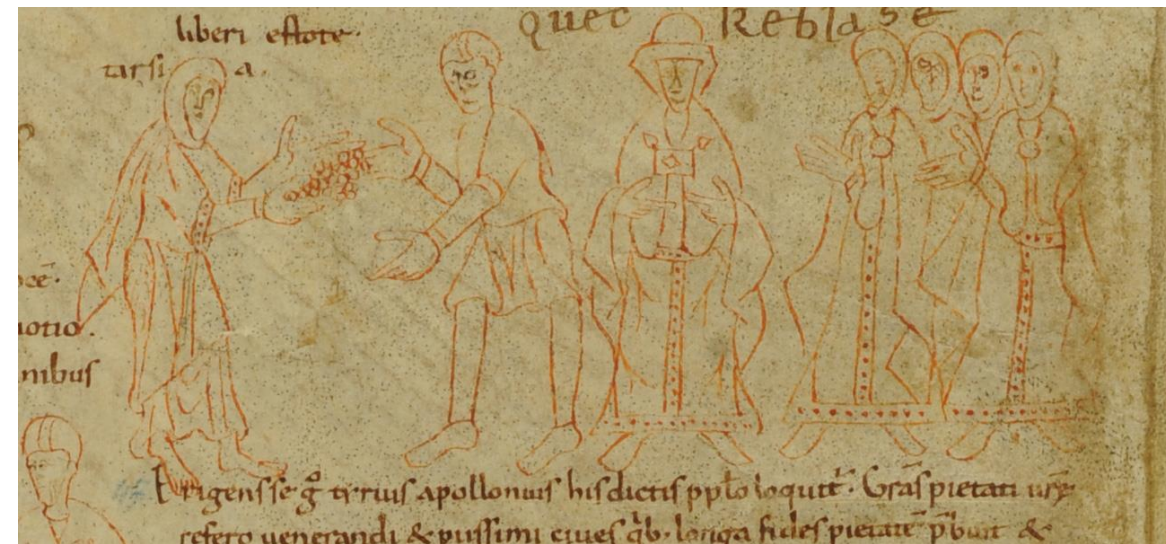 quec Reblase
liberi estote.
tarsi a.
uotio.
nibus
Erigens se gͦ tyrius apollonius his dictis pplo loquit᷑. Gr̄as pietati ur̄ę
refero uenerandi & piissimi ciues qb; longa fides pietatē p̄buit &